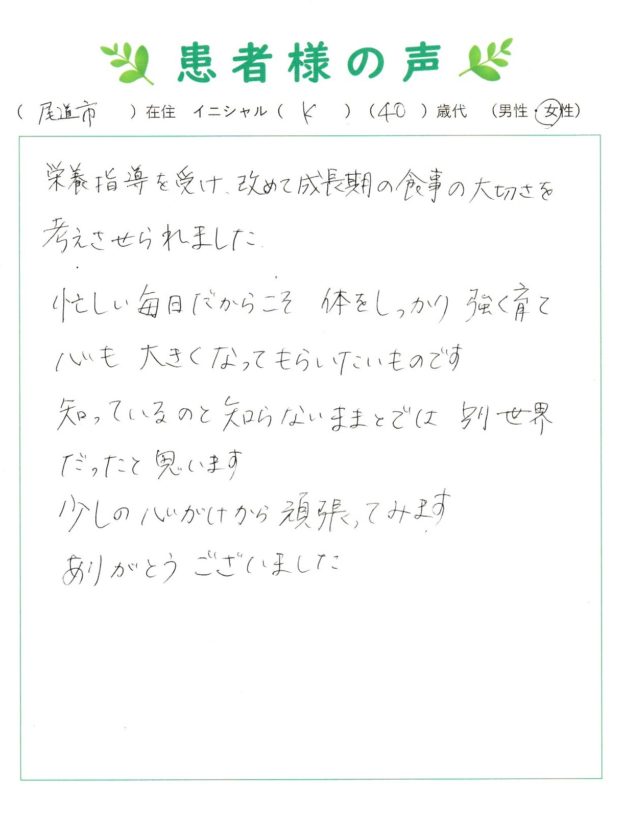 患者様の声
( 尾道市 ) 在住 イニシャル ( K ) ( 40 ) 歳代 (男性・女性)
栄養指導を受け、改めて成長期の食事の大切さを
考えさせられました。
忙しい毎日だからこそ 体をしっかり 強く育て
心も 大きくなってもらいたいものです
知っているのと知らないままとでは 別世界
だったと思います
少しの心がけから頑張ってみます
ありがとうございました